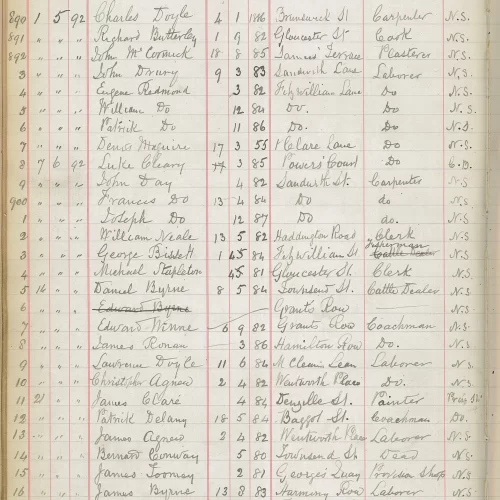 890 1 5 92 Charles Doyle 4 1 1886 Brunswick St Carpenter N.S.
891 " " " Richard Butterley 1 9 82 Gloucester St Cook N.S.
892 " " " John McCormick 18 8 85 James' Terrace Plasterer N.S.
3 " " " John Drury 9 3 83 Sandwith Lane Laborer N.S.
4 " " " Eugene Redmond 3 82 Fitzwilliam Lane Do N.S.
5 " " " William Do 12 84 Do. Do N.S.
6 " " " Patrick Do 11 86 Do. Do N.S.
7 " " " Denis Maguire 17 3 55 Clare Lane Do N.S.
8 7 6 92 Luke Cleary 3 85 Powers' Court Do
9 " " " John Day 4 82 Sandwith St. Carpenter N.S
900 " " " Frances Do 13 4 84 Do do N.S
1 " " " Joseph Do 12 87 Do do. N.S
2 " " " William Neale 13 5 82 Haddington Road Clerk N.S
3 " " " George Bissett 1 84 Fitzwilliam St N.S
4 " " " Michael Stapleton 81 Gloucester St. Clerk N.S
5 16 " " Daniel Byrne 8 5 84 Townsend St. Cattle Dealer N.S
6 " " Edward Byrne Grants Row N.S
7 " " " Edward 6 9 82 Grants Row Coachman N.S
8 " " " James Ronan 3 86 Hamilton Row Do. N.S
9 " " " Lawrence Doyle 11 6 84 Laborer N.S
10 " " " Christopher Agnew 2 4 82 Wentworth Place Do. N.S
11 21 " " James Clare 4 84 Denzille St. Painter
12 " " " Patrick Delany 18 5 84 Baggot St. Coachman Do.
13 " " " James Agnew 2 4 82 Wentworth Place Laborer N.S
14 " " " Bernard Conway 5 80 Townsend St Dead N.S
15 " " " James Toomey 2 81 George's Quay Provision Shop N.S
16 " " " James Byrne 13 8 83 Row Laborer N.S